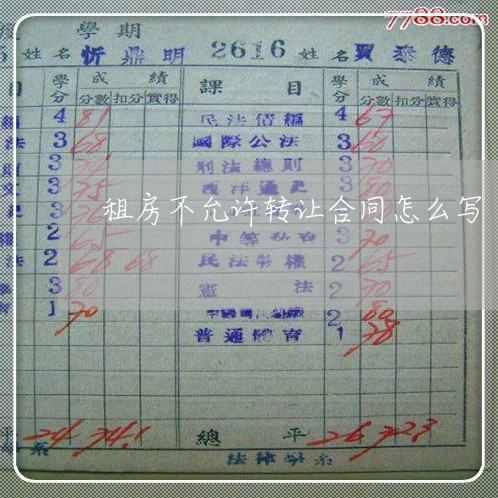 7788.com
學期
5 姓名 忻鼎明 2616 姓名 賈泰德
目 學分 成績 課目 學分 成績
分數 扣分 實得 分數 扣分 實得
4 81 民法債編 4 67
法 3 68 國際公法 3 60
則 3 刑法總則 3 70
文 3 75 西洋通史 3 80
租房不允许转让合同怎么写
權 2 65 3 70
法 2 68 68 民法物權 2 65
3 80 憲法 2 70
1 70 2 80
普通體育 1 78
平 24 74.1 總平 26 72.3
系 法律學系